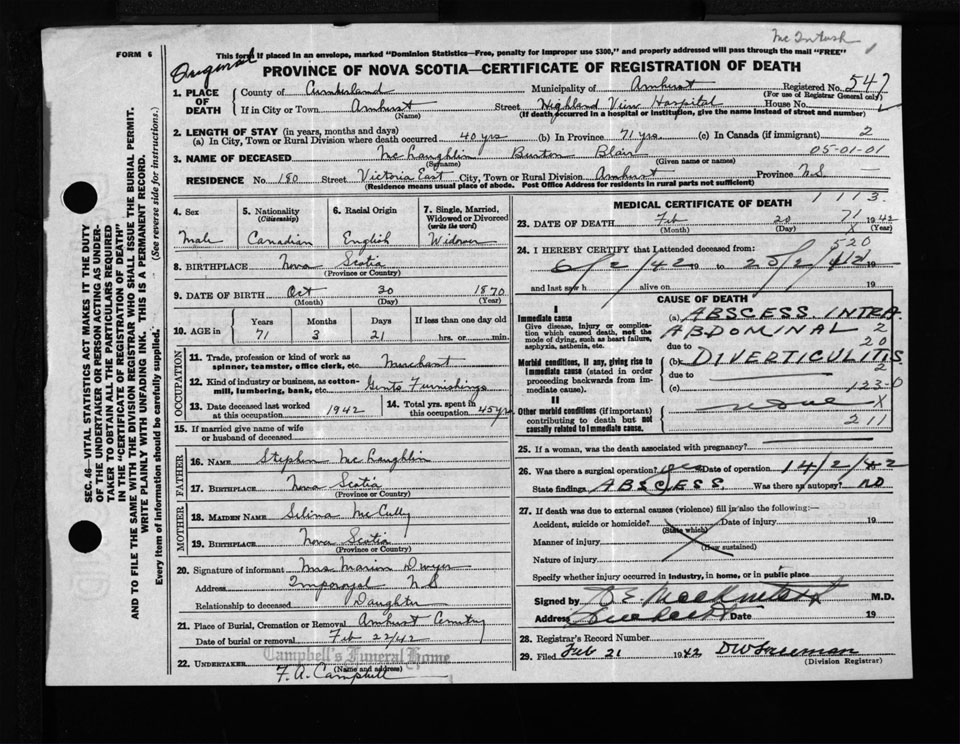 McIntosh
FORM 6
This form if placed in an envelope, marked "Dominion Statistics—Free, penalty for improper use $300," and properly addressed will pass through the mail "FREE"
Original
PROVINCE OF NOVA SCOTIA—CERTIFICATE OF REGISTRATION OF DEATH
1. PLACE OF DEATH County of Cumberland Municipality of Amherst Registered No. 547
(For use of Registrar General only)
If in City or Town Amherst Street Highland View Hospital House No.
(Name) (If death occurred in a hospital or institution, give the name instead of street and number)
2. LENGTH OF STAY (in years, months and days)
(a) In City, Town or Rural Division where death occurred 40 yrs (b) In Province 71 yrs. (c) In Canada (if immigrant) 2
3. NAME OF DECEASED McLaughlin Burton Blair 05-01-01
(Surname) (Given name or names)
RESIDENCE No. 180 Street Victoria East City, Town or Rural Division Amherst Province NS —
(Residence means usual place of abode. Post Office Address for residents in rural parts not sufficient)
4. Sex Male
5. Nationality (Citizenship) Canadian
6. Racial Origin English
7. Single, Married, Widowed or Divorced (write the word) Widower
8. BIRTHPLACE Nova Scotia
(Province or Country)
9. DATE OF BIRTH Oct 30 1870
(Month) (Day) (Year)
10. AGE in Years Months Days If less than one day old
71 3 21 hrs. or min.
OCCUPATION
11. Trade, profession or kind of work as spinner, teamster, office clerk, etc. Merchant
12. Kind of industry or business, as cotton-mill, lumbering, bank, etc. Gents Furnishings
13. Date deceased last worked at this occupation 1942
14. Total yrs. spent in this occupation 45 yrs
15. If married give name of wife or husband of deceased
FATHER
16. NAME Stephen McLaughlin
17. BIRTHPLACE Nova Scotia
(Province or Country)
MOTHER
18. MAIDEN NAME Selina McCully
19. BIRTHPLACE Nova Scotia
(Province or Country)
20. Signature of informant Mrs Marion Dwyer
Address NS
Relationship to deceased Daughter
21. Place of Burial, Cremation or Removal Amherst Cemetery
Date of burial or removal Feb 22/42
Campbell's Funeral Home
22. UNDERTAKER (Name and address)
F. A. Campbell
MEDICAL CERTIFICATE OF DEATH 1113.
23. DATE OF DEATH Feb 20 71 1942
(Month) (Day) X (Year)
24. I HEREBY CERTIFY that I attended deceased from: 520
6/2/42 19 to 2 /2/42 19
and last saw h alive on 19
CAUSE OF DEATH
I
Immediate cause (a) ABSCESS INTRA
Give disease, injury or complication which caused death, not the mode of dying, such as heart failure, asphyxia, asthenia, etc. ABDOMINAL 2
due to 20
Morbid conditions, if any, giving rise to immediate cause (stated in order proceeding backwards from immediate cause). (b) DIVERTICULITIS
due to 2
(c) 123-0
II
Other morbid conditions (if important) contributing to death but not causally related to immediate cause. None X
211
25. If a woman, was the death associated with pregnancy?
26. Was there a surgical operation? yes Date of operation 14/2/42
State findings ABSCESS. Was there an autopsy? NO
27. If death was due to external causes (violence) fill in also the following:—
Accident, suicide or homicide? Date of injury 19
(State which)
Manner of injury
(How sustained)
Nature of injury
Specify whether injury occurred in industry, in home, or in public place
Signed by M.D.
Address Date 19
28. Registrar's Record Number
29. Filed Feb 21 1942
(Division Registrar)
SEC. 46—VITAL STATISTICS ACT MAKES IT THE DUTY
OF THE UNDERTAKER OR PERSON ACTING AS UNDER-
TAKER TO OBTAIN ALL THE PARTICULARS REQUIRED
IN THE "CERTIFICATE OF REGISTRATION OF DEATH"
AND TO FILE THE SAME WITH THE DIVISION REGISTRAR WHO SHALL ISSUE THE BURIAL PERMIT.
WRITE PLAINLY WITH UNFADING INK. THIS IS A PERMANENT RECORD.
Every item of information should be carefully supplied. (See reverse side for instructions.)